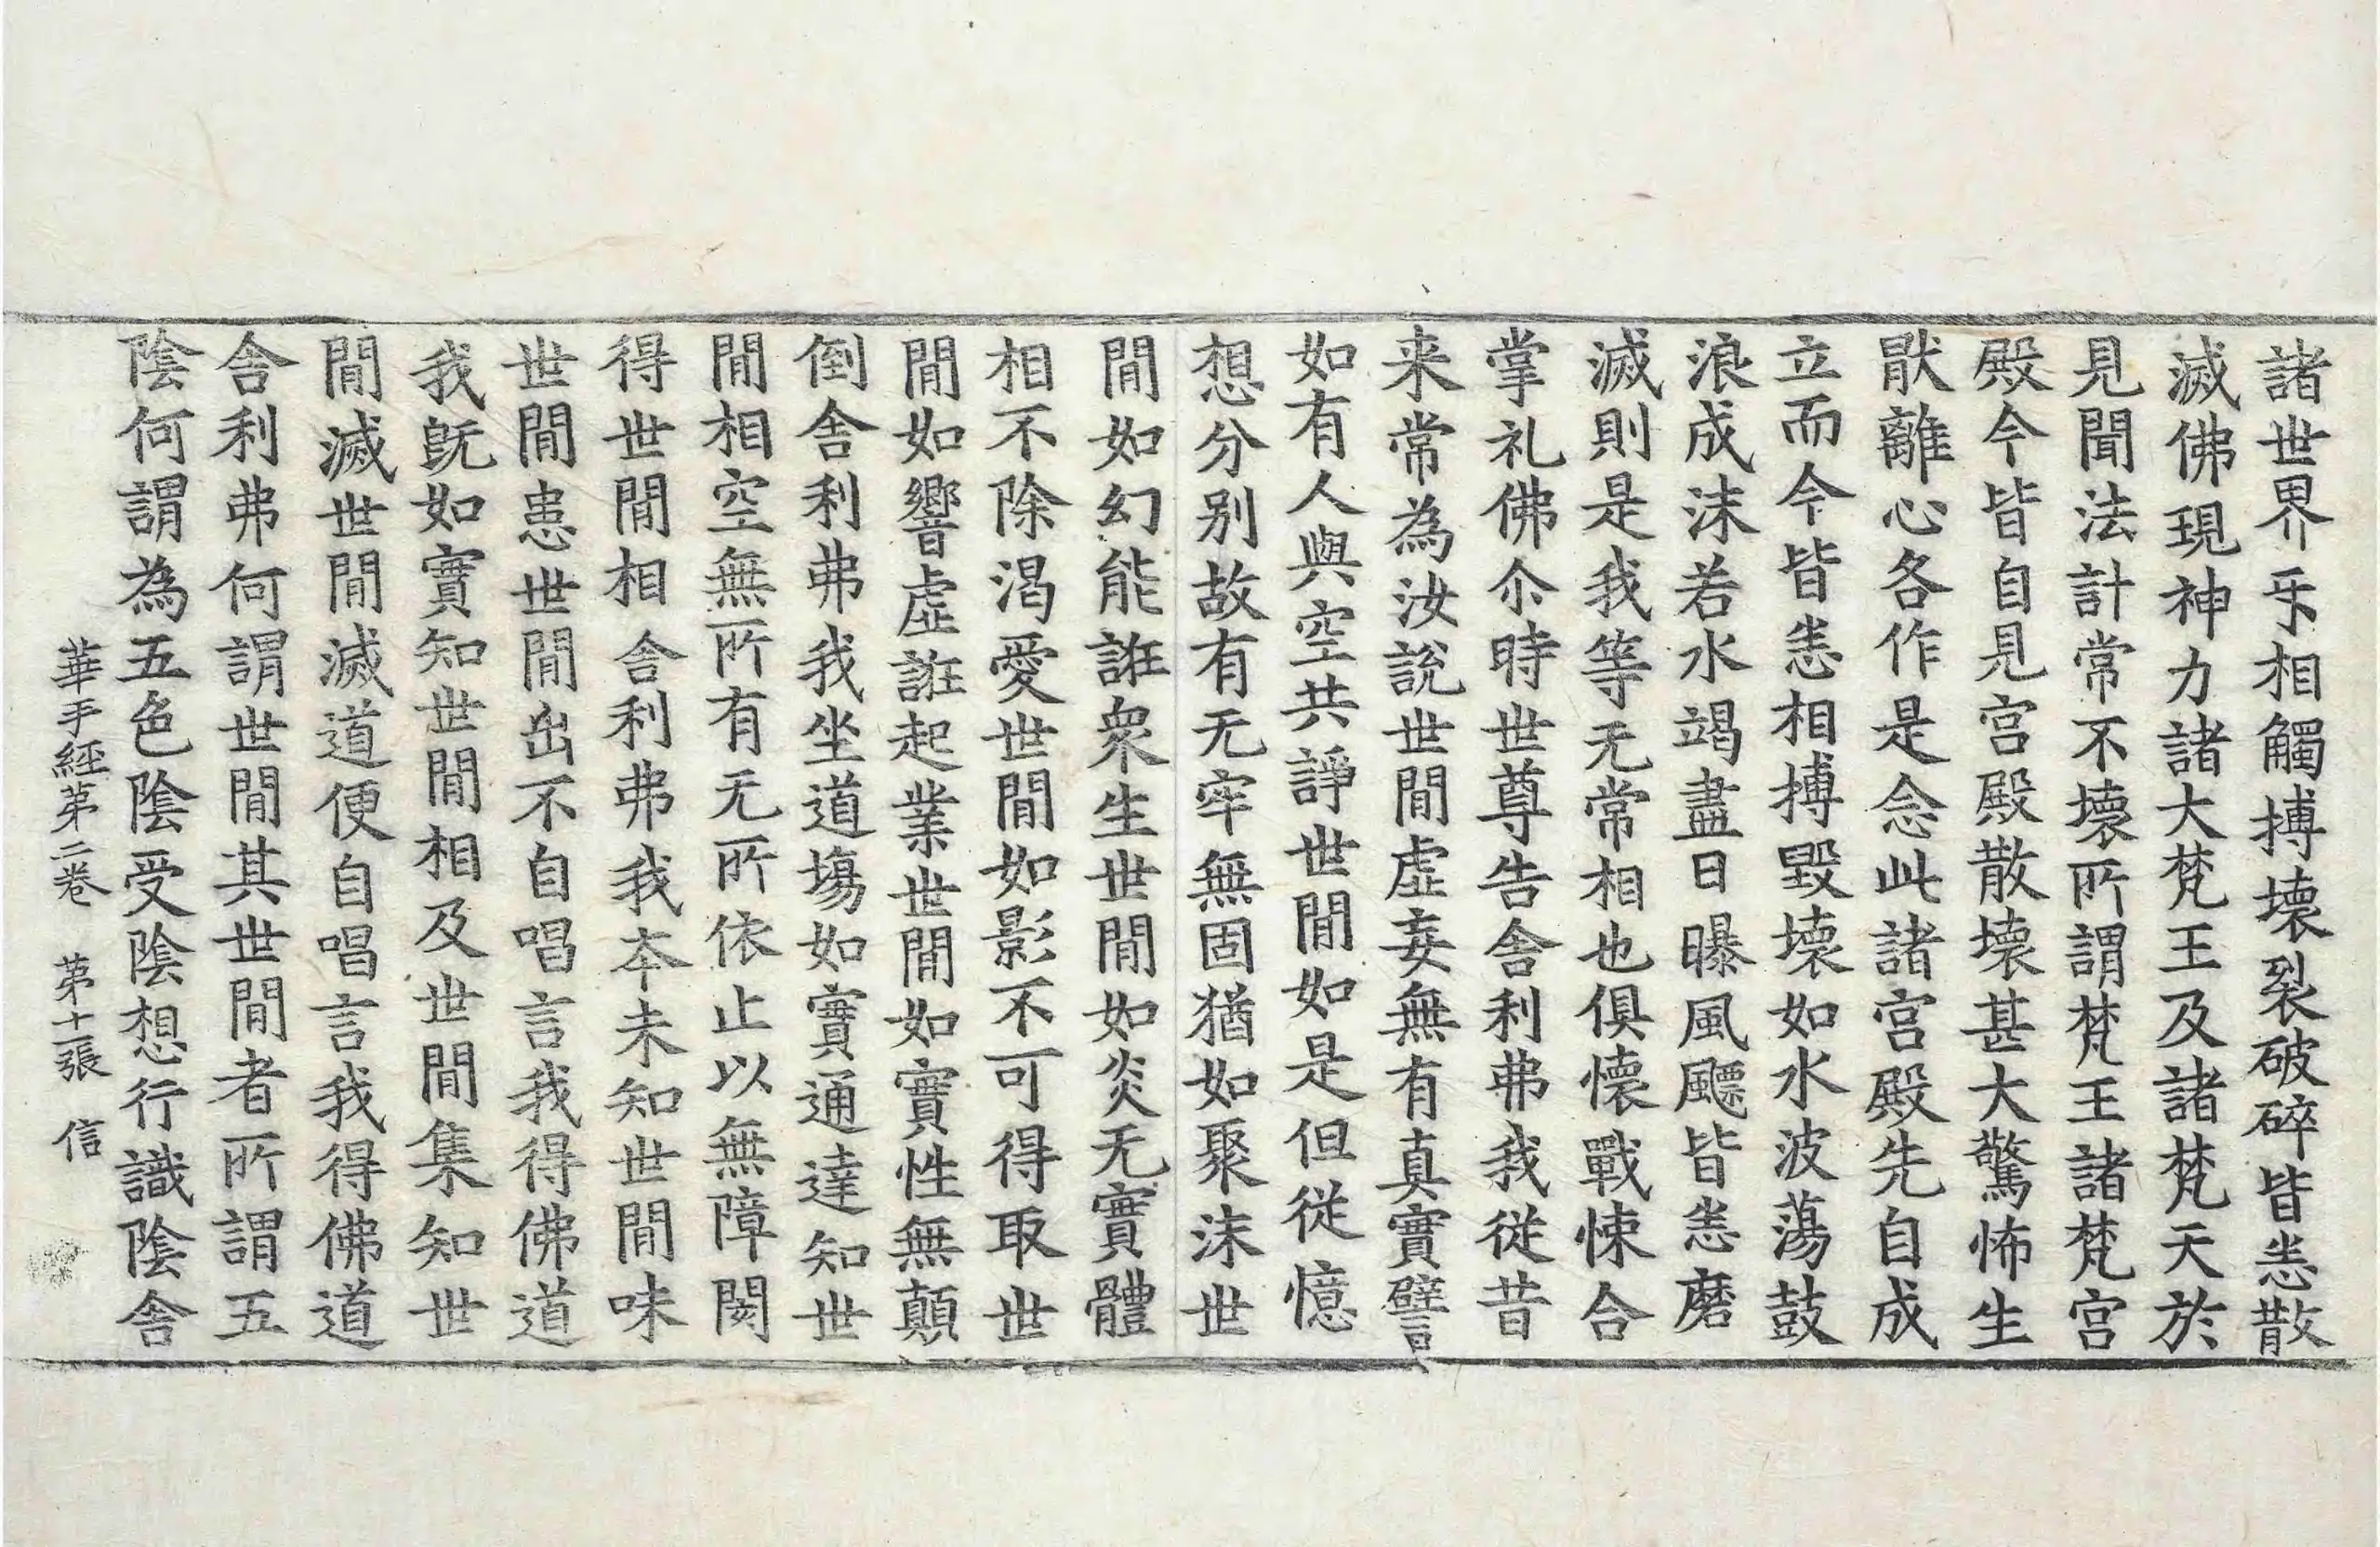 諸世界乐相觸搏壞裂破碎皆悉散
滅佛現神力諸大梵王及諸梵天於
見聞法計常不壞所謂梵王諸梵宫
殿今皆自見宫殿散壞甚大驚怖生
猒離心各作是念此諸宫殿先自成
立而今皆悉相搏毀壞如水波蕩鼓
浪成沫若水竭盡日曝風飃皆悉磨
滅則是我等无常相也俱懷戰悚合
掌礼佛尒時世尊告舍利弗我從昔
来常為汝說世閒虛妄無有真實譬
如有人與空共諍世閒如是但從憶
想分别故有无牢無固猶如聚沫世
閒如幻能誑衆生世閒如炎无實體
相不除渴愛世閒如影不可得取世
閒如響虛誑起業世閒如實性無顛
倒舍利弗我坐道場如實通達知世
閒相空無所有无所依止以無障閡
得世閒相舍利弗我夲未知世閒味
世閒患世閒出不自唱言我得佛道
我旣如實知世閒相及世閒集知世
閒滅世閒滅道便自唱言我得佛道
舍利弗何謂世閒其世閒者所謂五
陰何謂為五色陰受陰想行識陰舍
華手經第二卷　第十一張　信